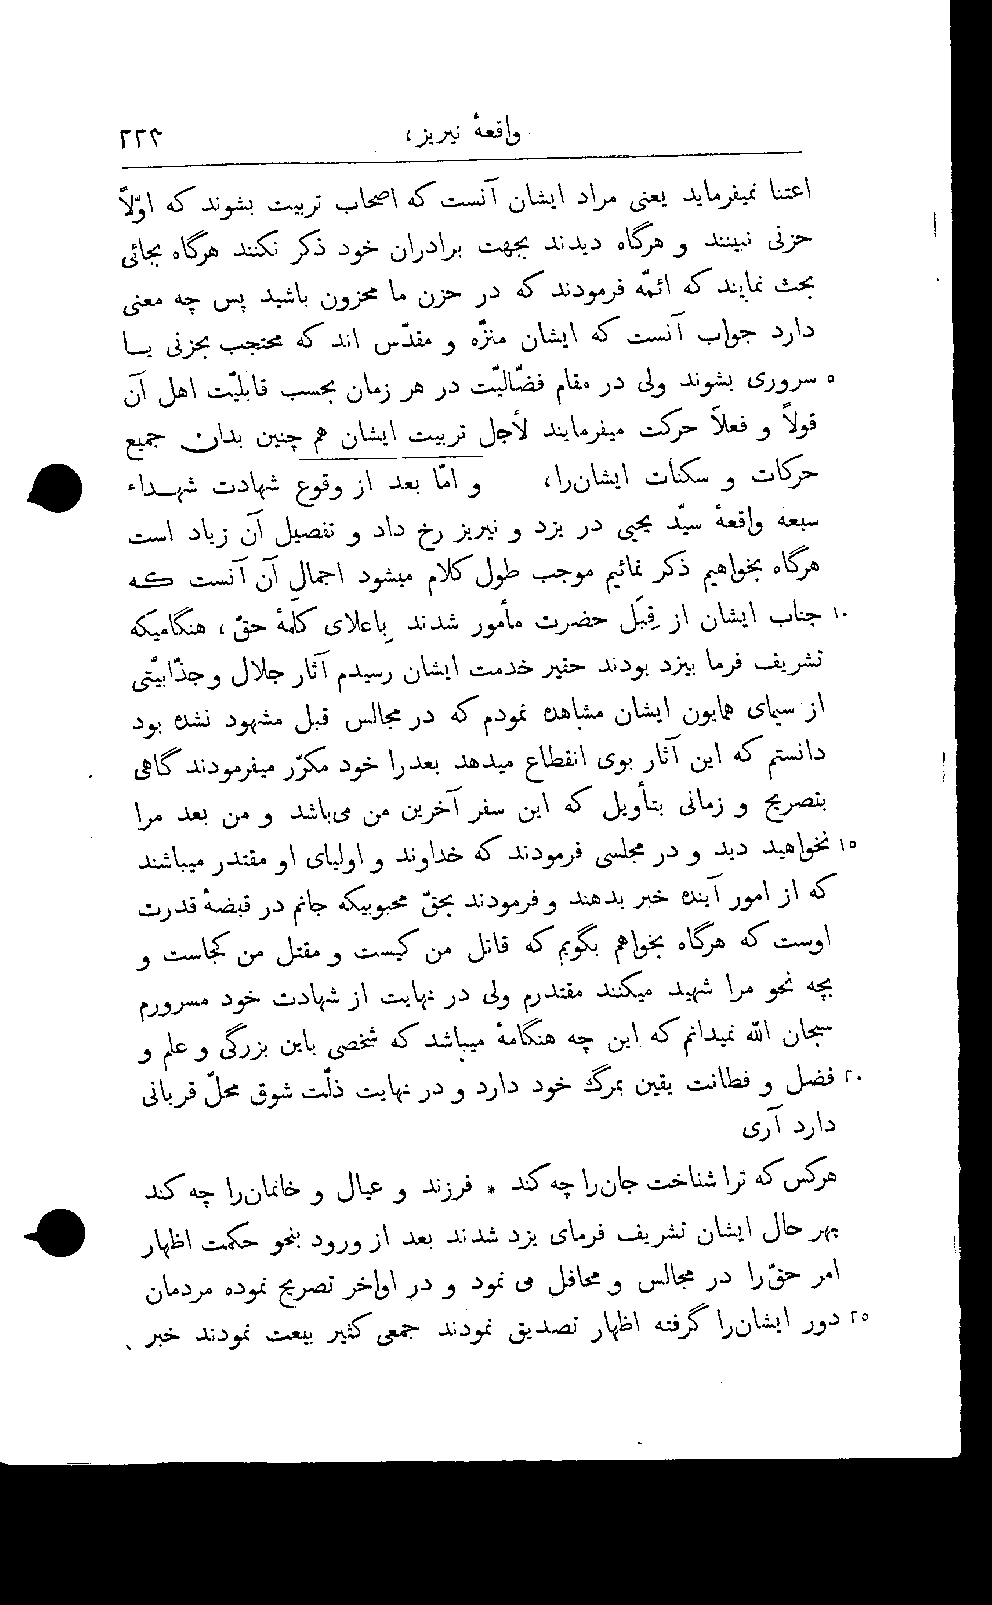 واقعهٔ نیریز، ۲۲۳
اعتنا نمیفرماید یعنی مراد ایشان آنست که اصحاب تربیت بشوند که اوّلاً
حزنی نبینند و هرگاه دیدند بجهت برادران خود ذکر نکنند هرگاه بجائی
بحث نمایند که ائمّه فرمودند که در حزن ما محزون باشید پس چه معنی
دارد جواب آنست که ایشان منزّه و مقدّس اند که محتجب بحزنی یا
۵ سروری بشوند ولی در مقام فضّالیّت در هر زمان بحسب قابلیّت اهل آن
قولاً و فعلاً حرکت میفرمایند لأجل تربیت ایشان هم چنین بدان جمیع
حرکات و سکنات ایشان‌را، و امّا بعد از وقوع شهادت شهداء
سبعه واقعهٔ سیّد یحیی در یزد و نیریز رخ داد و تفصیل آن زیاد است
هرگاه بخواهیم ذکر نمائیم موجب طول کلام میشود اجمال آن آنست که
۱۰ جناب ایشان از قِبَل حضرت مأمور شدند بِاعلای کلمهٔ حقّ ، هنگامیکه
تشریف فرما بیزد بودند حقیر خدمت ایشان رسیدم آثار جلال و جذّابیّتی
از سیمای همایون ایشان مشاهده نمودم که در مجالس قبل مشهود نشده بود
دانستم که این آثار بوی انقطاع میدهد بعد را خود مکرّر میفرمودند گاهی
بتصریح و زمانی بتأویل که این سفر آخرین من می‌باشد و من بعد مرا
۱۵ نخواهید دید و در مجلسی فرمودند که خداوند و اولیای او مقتدر میباشند
که از امور آینده خبر بدهند و فرمودند بحقّ محبوبیکه جانم در قبضهٔ قدرت
اوست که هرگاه بخواهم بگویم که قاتل من کیست و مقتل من کجاست و
بچه نحو مرا شهید میکنند مقتدرم ولی در نهایت از شهادت خود مسرورم
سبحان الله نمیدانم که این چه هنگامهٔ میباشد که شخصی باین بزرگی و علم و
۲۰ فضل و فطانت یقین بمرگ خود دارد و در نهایت ذلّت شوق محلّ قربانی
دارد آری
هرکس که ترا شناخت جان‌را چه کند * فرزند و عیال و خانمان‌را چه کند
بهر حال ایشان تشریف فرمای یزد شدند بعد از ورود بنحو حکمت اظهار
امر حقّ را در مجالس و محافل می نمود و در اواخر تصریح نموده مردمان
۲۵ دور ایشان‌را گرفته اظهار تصدیق نمودند جمعی کثیر بیعت نمودند خبر